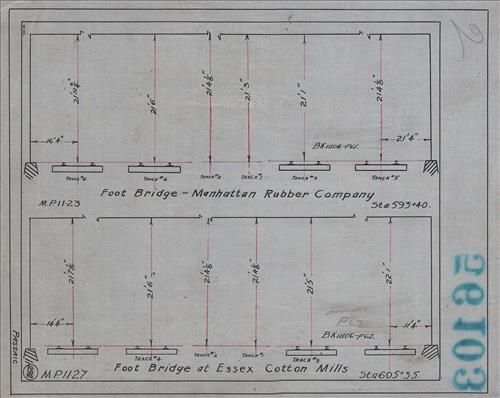 21'6"
21'4⅛"
21'3"
21'1"
21'4⅛"
16'4"
BK1110B-PG1.
21'4"
TRACK#6 TRACK#4 TRACK#2 TRACK#1 TRACK#3 TRACK#5
Foot Bridge - Manhattan Rubber Company
M.P.11.23 Sta.593+40.
21'7⅛"
21'6"
21'4⅛"
21'4⅛"
21'5"
22'1"
14'4"
PG2
BK1110G-PG2.
11'4"
TRACK#4 TRACK#2 TRACK#1 TRACK#3
PASSAIC
M.P.11.27 Foot Bridge at Essex Cotton Mills Sta605+35.
56103